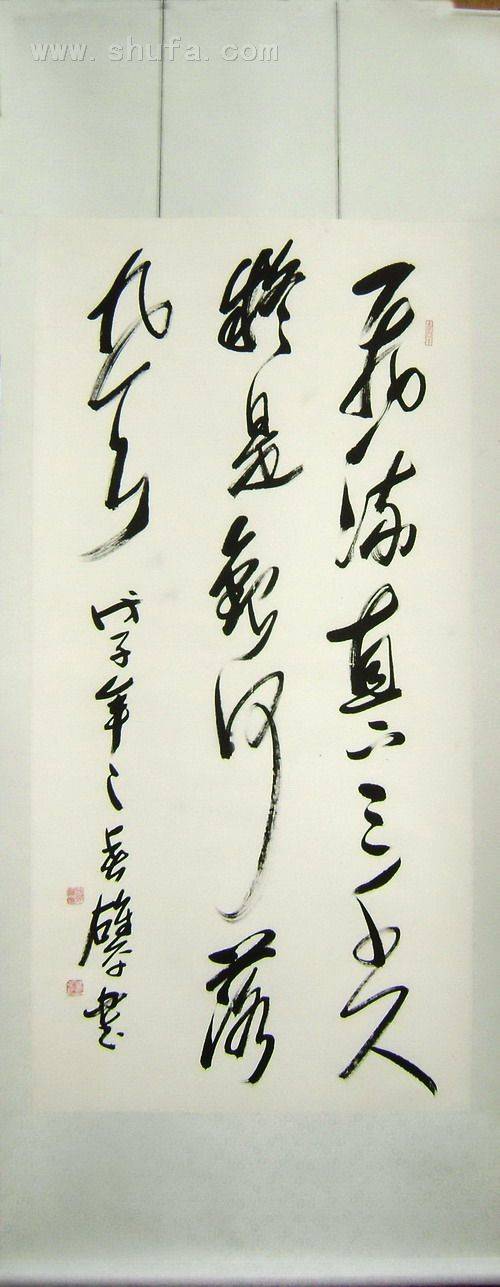 www.shufa.com
飛流直下三千尺
疑是銀河落
九天 戊子年之春 書